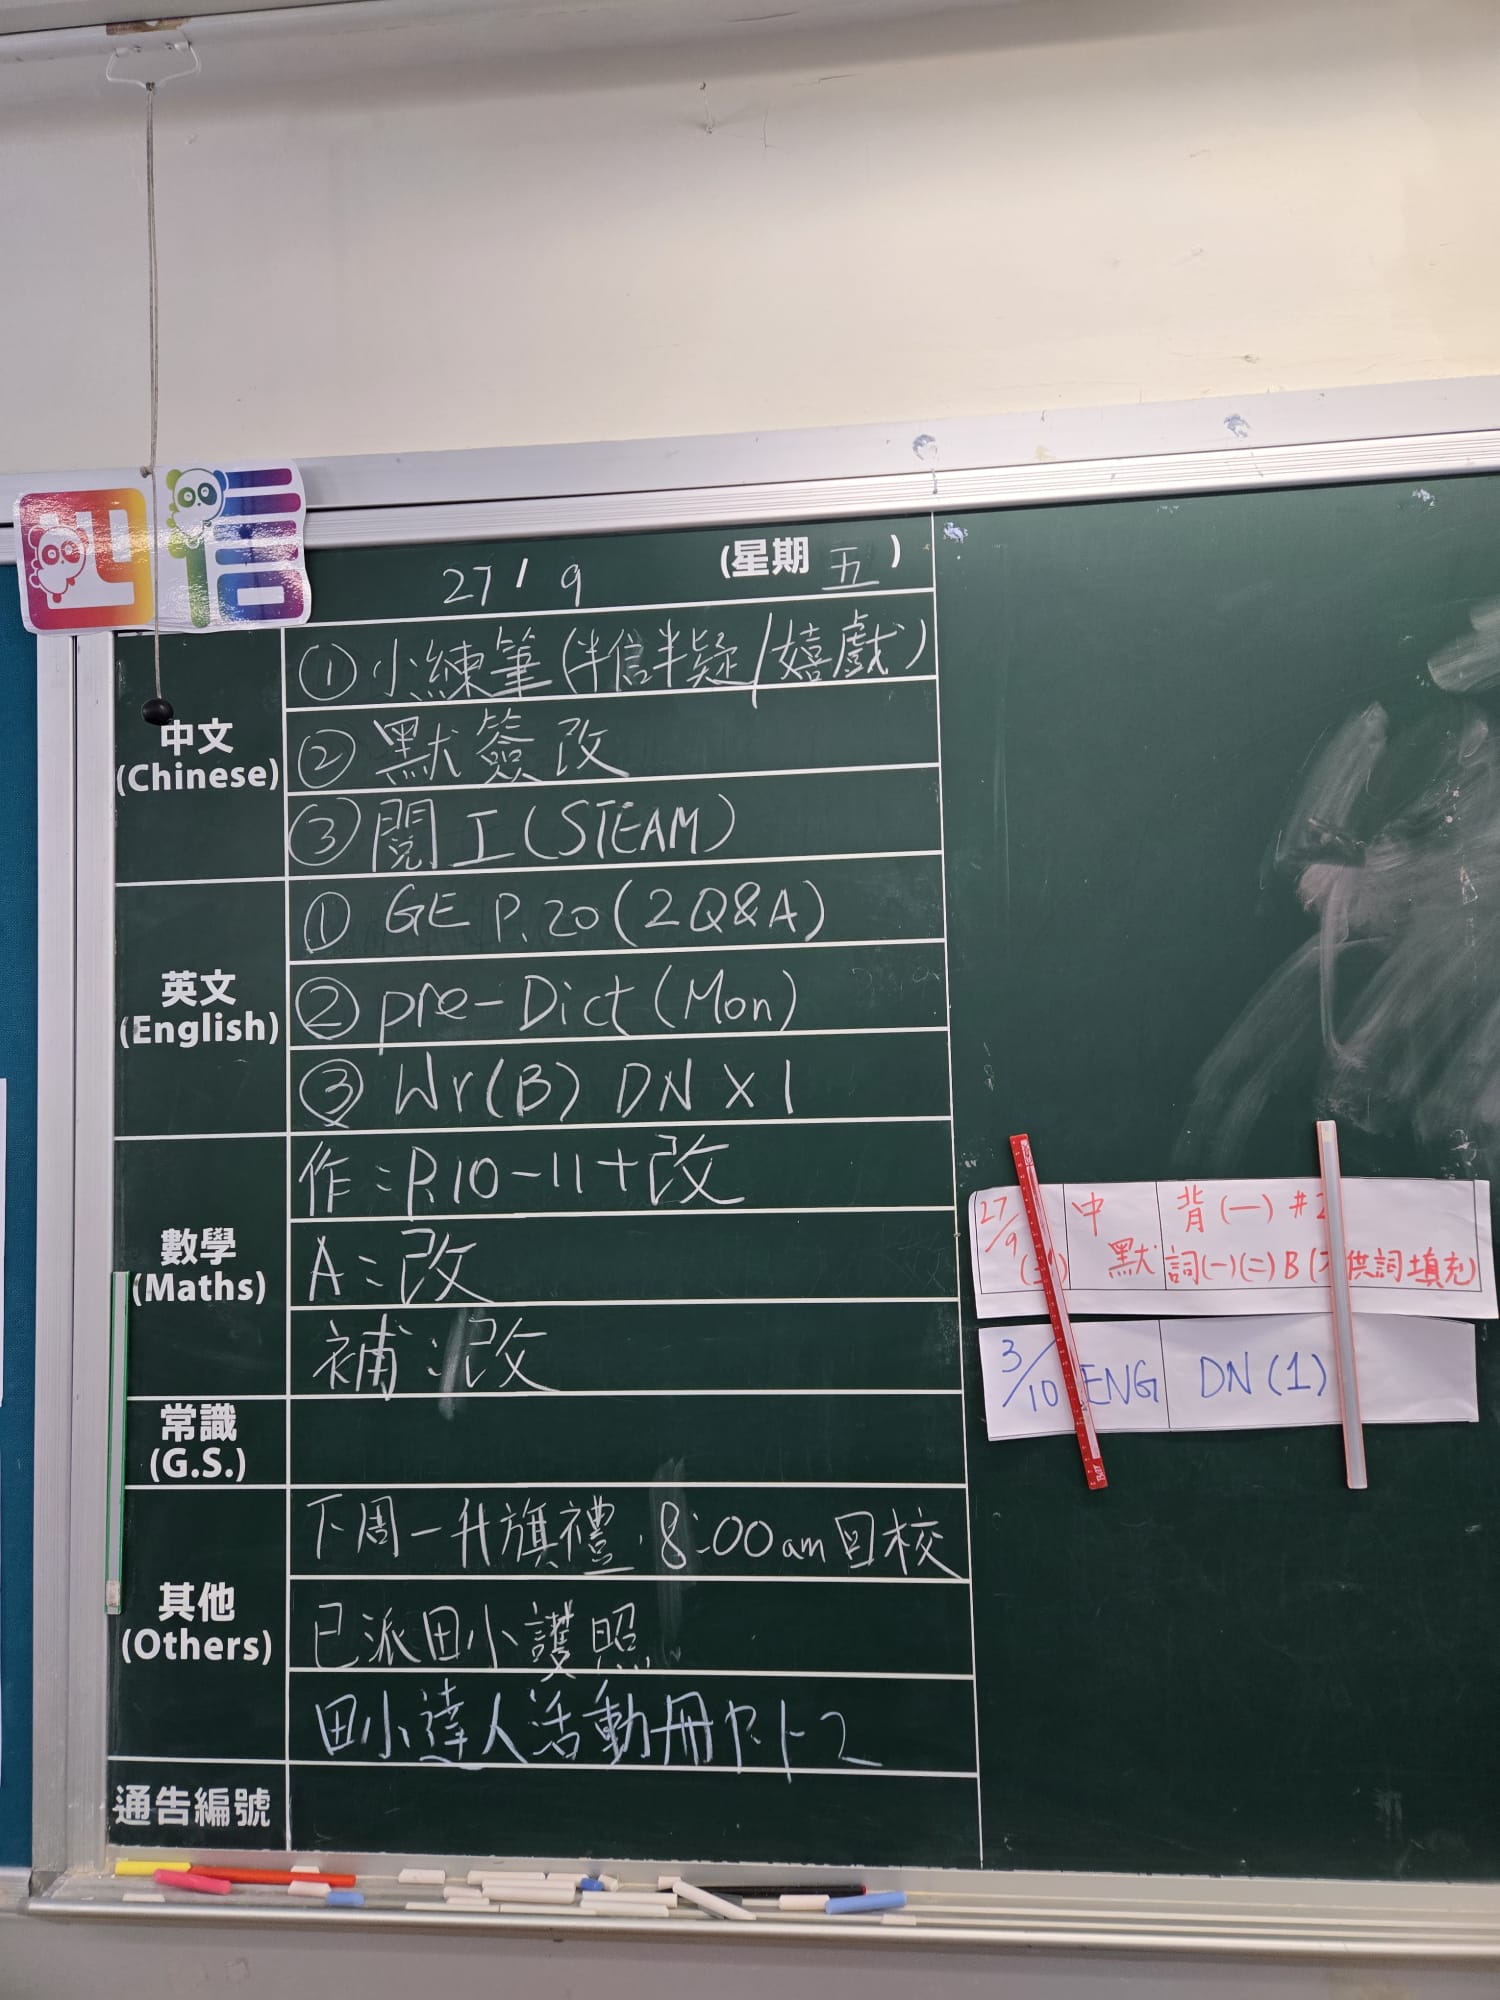 四信
27/9 (星期五)
中文
(Chinese)
① 小練筆(半信半疑/嬉戲)
② 默簽改
③ 閱工(STEAM)
英文
(English)
① GE P.20 (2Q&A)
② pre-Dict (Mon)
③ Wr(B) DN X 1
數學
(Maths)
作:P.10-11+改
A:改
補:改
常識
(G.S.)
其他
(Others)
下周一升旗禮,8:00am回校
已派田小護照
田小達人活動冊P.1-2
通告編號
27/9 中默 背(一)#2
詞(一)(二)B(供詞填充)
3/10 ENG DN(1)